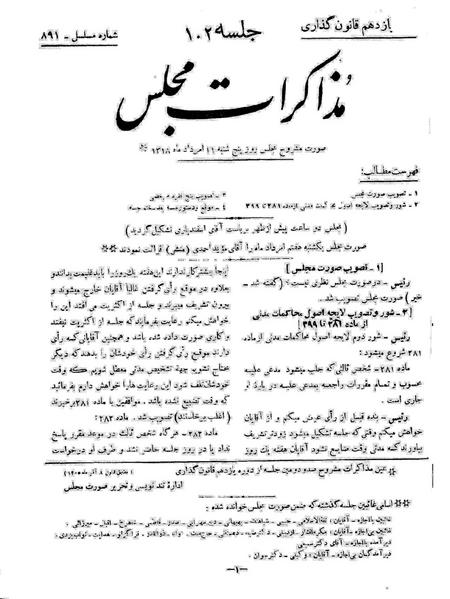 یازدهم قانون گذاری
جلسه ۱۰۲
شماره مسلسل - ۸۹۱
مذاکرات مجلس
صورت مشروح مجلس روز پنج شنبه ۱۱ امرداد ماه ۱۳۱۸
فهرست مطالب:
۱ - تصویب صورت مجلس
۲ - شور و تصویب لایحه اصول محاکمات مدنی از ماده ۳۸۱ تا ۳۹۹
۳ - تصویب پنج فقره مرخصی
۴ - موقع و دستور جلسه بعد ختم جلسه
(مجلس دو ساعت پیش از ظهر بریاست آقای اسفندیاری تشکیل گردید)
صورت مجلس یکشنبه هفتم امرداد ماه را آقای مؤید احمدی (منشی) قرائت نمودند
[ ۱ - تصویب صورت مجلس ]
رئیس - در صورت مجلس نظری نیست؟ (گفته شد -
خیر) صورت مجلس تصویب شد.
[ ۲ - شور و تصویب لایحه اصول محاکمات مدنی
از ماده ۳۸۱ تا ۳۹۹ ]
رئیس - شور دوم لایحه اصول محاکمات مدنی از ماده
۳۸۱ شروع میشود:
ماده ۳۸۱ - شخص ثالثی که جلب میشود مدعی علیه
محسوب و تمام مقررات راجعه بمدعی علیه در باره او
جاری است.
رئیس - بنده قبل از رأی عرض میکنم و از آقایان
خواهش میکنم وقتی که جلسه تشکیل میشود زودتر تشریف
بیاورند که مدتی وقت ضایع نشود آقایان هفته یک روز
اینجا بیشتر کار ندارند این هفته یک روز را باید غنیمت بدانند و
بعلاوه در موقع رأی گرفتن غالباً آقایان خارج میشوند و
بیرون تشریف میبرند و جلسه از اکثریت می افتد این را
خواهش میکنم رعایت بفرمایند که جلسه از اکثریت نیفتد
و کاری صورت داده شده باشد و همچنین آقایانی که رأی
دارند موقع رأی گرفتن رأی خودشان را بدهند که دیگر
محتاج نشویم جهة تشخیص مدتی معطل شویم که وقت
خودشان تلف شود این رعایت ها را خواهش دارم بفرمائید
که وقت تضییع نشده باشد. موافقین با ماده ۳۸۱ برخیزند
(اغلب برخاستند) تصویب شد. ماده ۳۸۲:
ماده ۳۸۲ - هر گاه شخص ثالث در موعد مقرر پاسخ
نداد یا در روز جلسه حاضر نشد و طرف او درخواست
عین مذاکرات مشروح صد و دومین جلسه از دوره یازدهم قانون گذاری
اداره تند نویسی و تحریر صورت مجلس
اسامی غائبین جلسه گذشته که ضمن صورت مجلس خوانده شده:
دیر آمده بی اجازه - آقای دکتر سمیعی